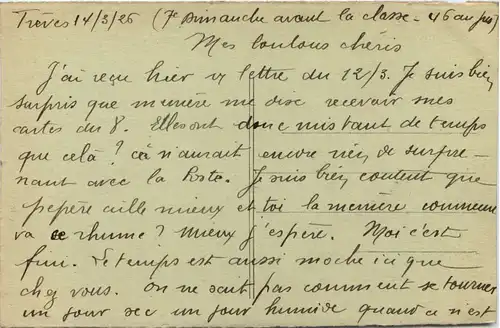 Trèves 14/3/26 (7e Dimanche avant la classe - 46 au jus)
Mes loulous chéris
J'ai reçu hier v/ lettre du 12/3. Je suis bien
surpris que memère me dise recevoir mes
cartes du 8. Elles ont donc mis tant de temps
que celà ? ça n'aurait encore rien de surpre-
nant avec la Poste. Je suis bien content que
pepère aille mieux et toi la memère comment
va ce rhume ? Mieux j'espère. Moi c'est
fini. Le temps est aussi moche ici que
chez vous. On ne sait pas comment se tourner
un jour sec un jour humide quand ce n'est